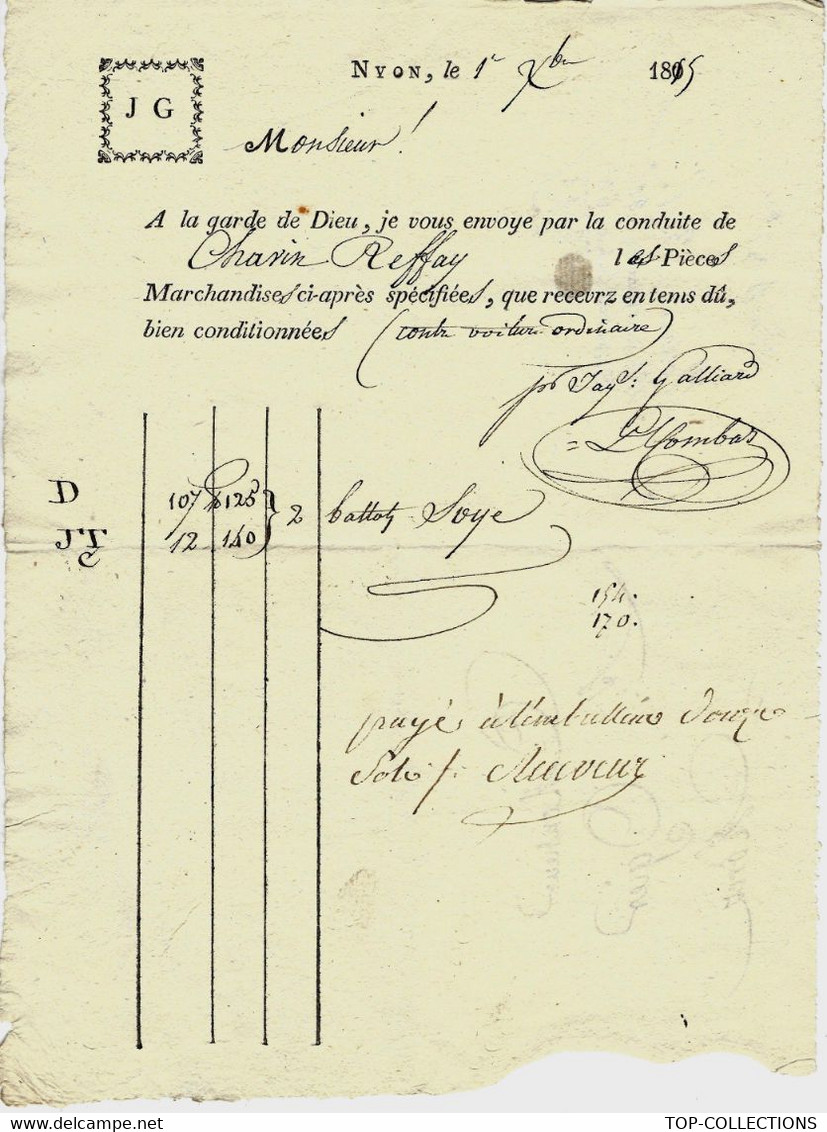 NYON, le 1r Xbre 1815
J G
Monsieur!
A la garde de Dieu, je vous envoye par la conduite de
Chavin Reffay les Pièces
Marchandises ci-après spécifiées, que recevrz en tems dû,
bien conditionnées (contre voiture ordinaire)
pr Jaqs: Galliard
= Ls Combas
D 107 126 } 2 Ballots Soye
JT 12 140
G
154.
170.
payé à l'emballeur douze
Sols
TOP-COLLECTIONS